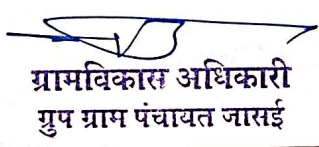 ग्रामविकास अधिकारी
ग्रुप ग्राम पंचायत जासई